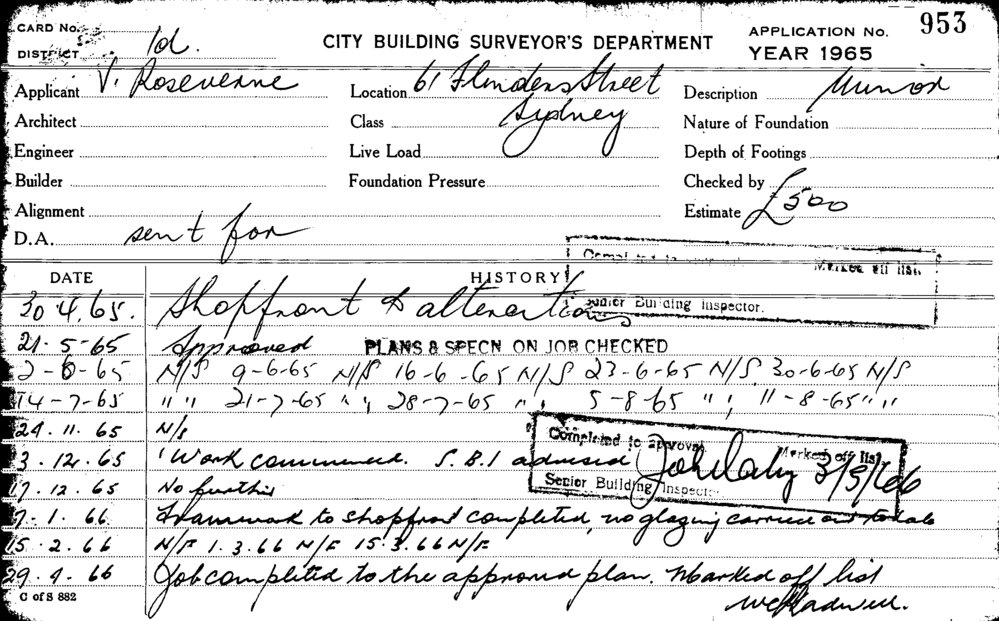 CARD No.
CITY BUILDING SURVEYOR'S DEPARTMENT
APPLICATION No. 953
DISTRICT Id.
YEAR 1965
Applicant V. Rosevenne
Location 61 Flinders Street
Sydney
Description Minor
Architect
Class
Nature of Foundation
Engineer
Live Load
Depth of Footings
Builder
Foundation Pressure
Checked by
Alignment
Estimate £500
D.A. sent for
Marked off list
DATE HISTORY
Senior Building Inspector.
30.4.65. Shopfront & alterations
21-5-65 Approved PLANS & SPECN ON JOB CHECKED
2-6-65 N/S 9-6-65 N/S 16-6-65 N/S 23-6-65 N/S 30-6-65 N/S
14-7-65 " " 21-7-65 " " 28-7-65 " " 5-8-65 " " 11-8-65 " "
24.11.65 N/S
Completed to approval Marked off list
3.12.65 Work commenced. S.B.I advised
3/5/66
Senior Building Inspector
17.12.65 No further
7.1.66 Framework to shopfront completed, no glazing carried out to date
15.2.66 N/F 1.3.66 N/F 15.3.66 N/F
29.4.66 Job completed to the approved plan. Marked off list
C of S 882